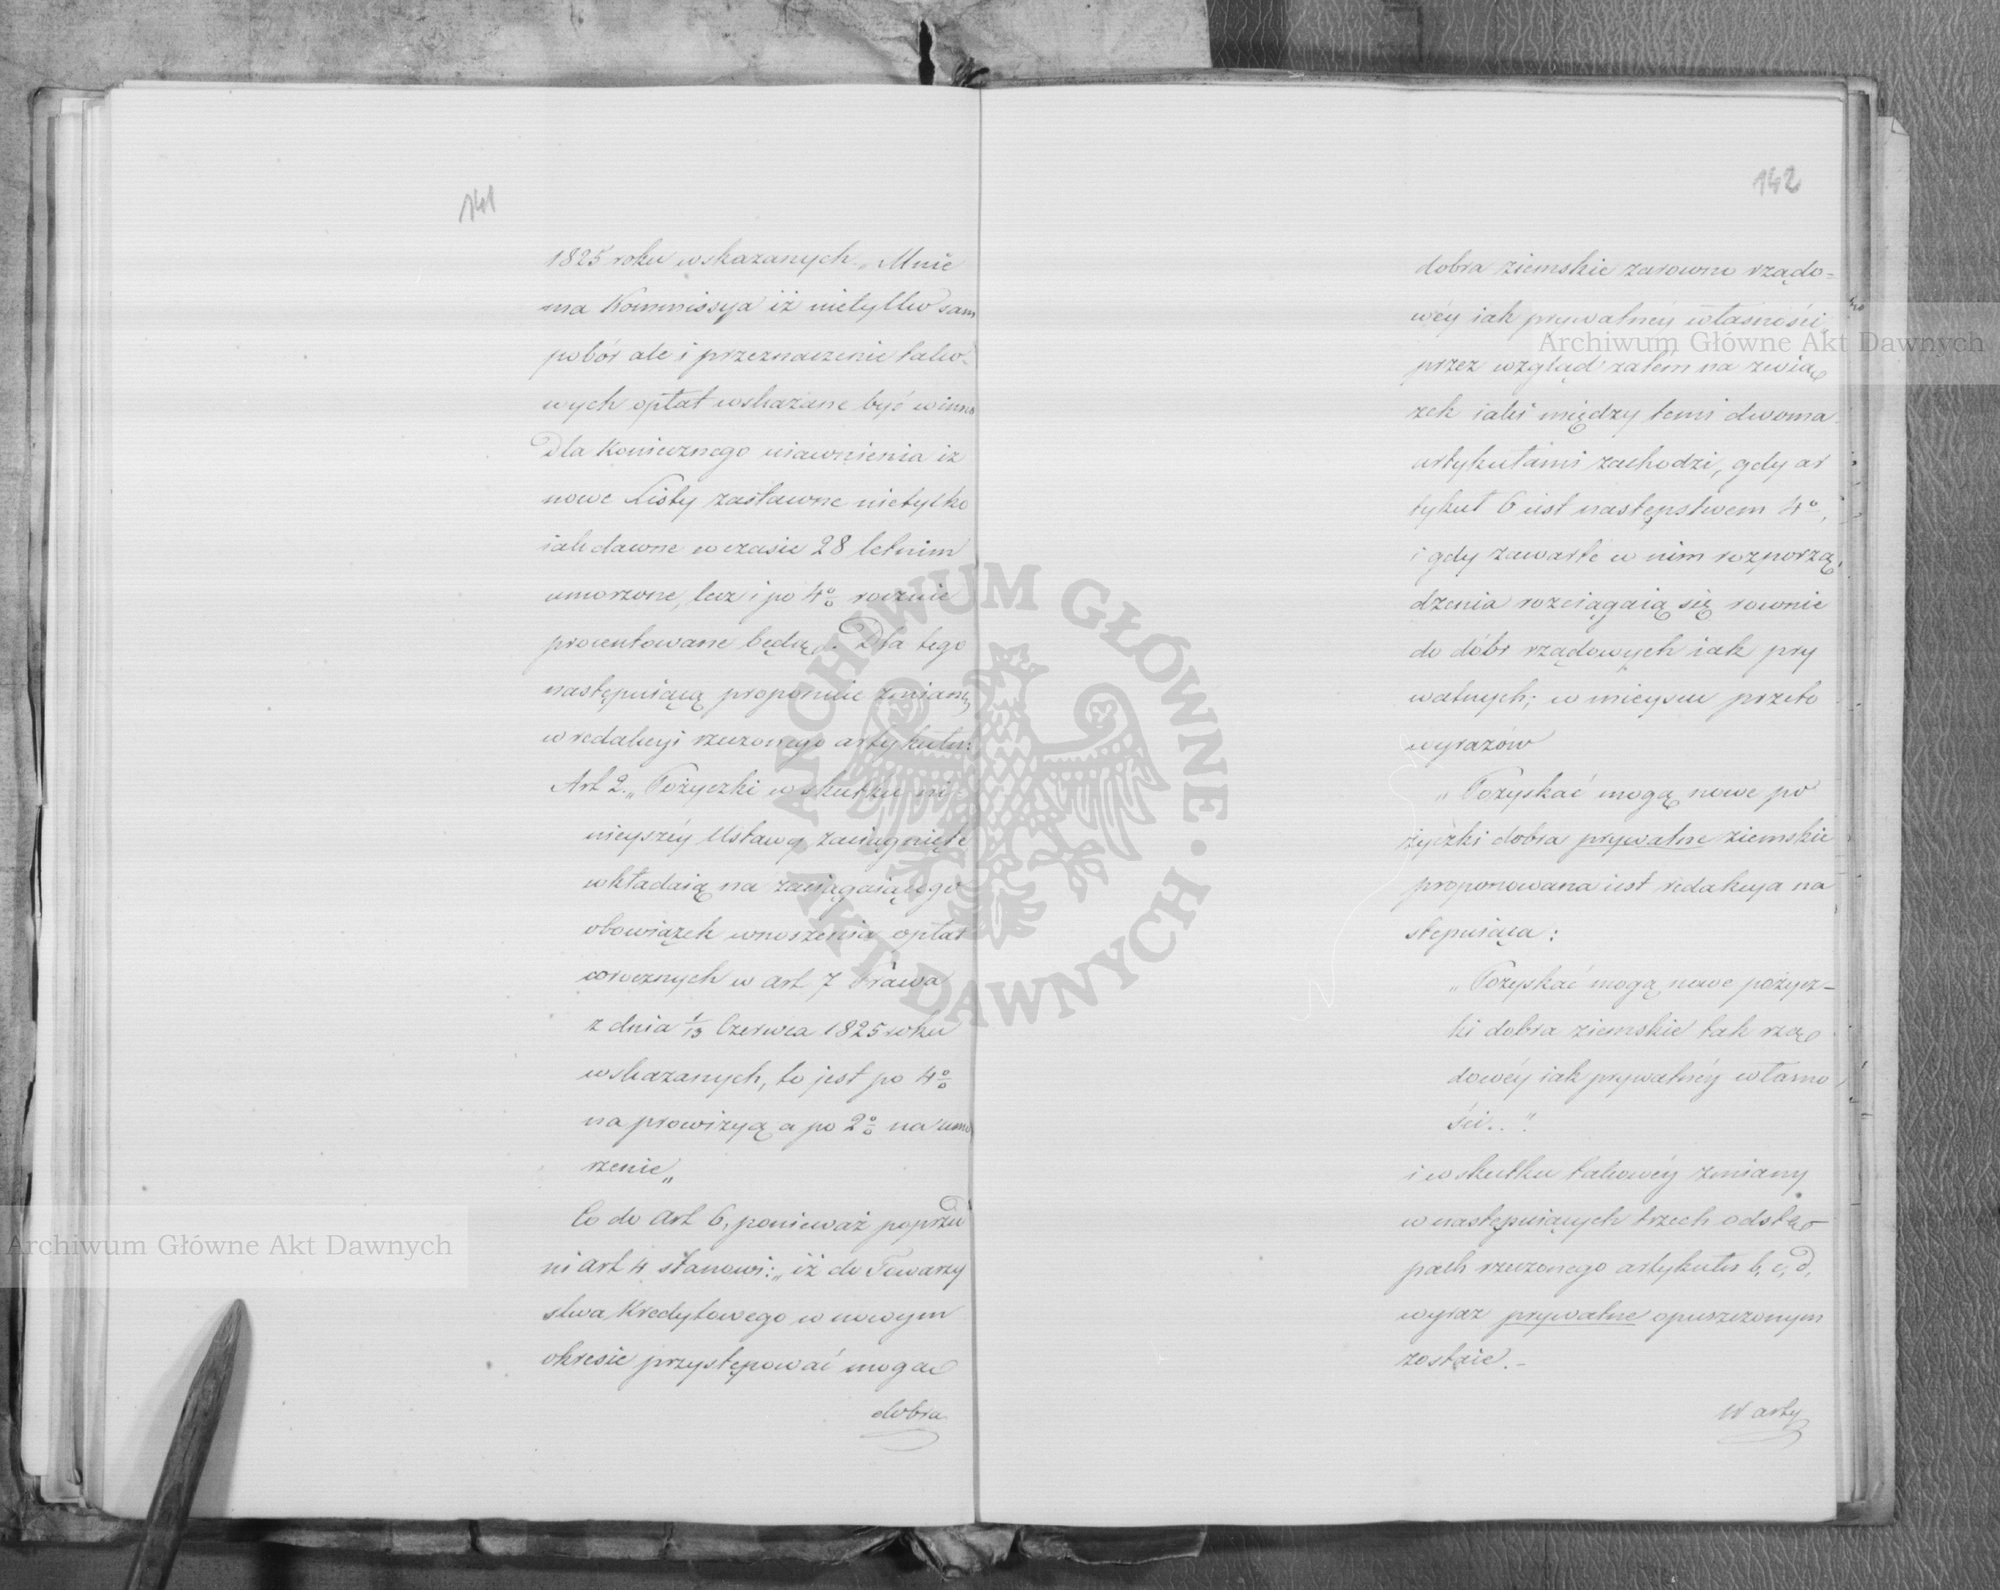 141
1825 roku wskazanych. „Mnie
ma Kommissya iż nietylko sam
pobór ale i przeznaczenie tako-
wych opłat wskazane być winno
Dla koniecznego uiawnienia iż
nowe Listy zastawne nietylko
iak dawne w czasie 28 letnim
umorzone, lecz i po 4% rocznie
procentowane będą. Dla tego
następuiącą proponuie zmianę
w redakcyi rzeczonego artykułu:
Art 2. „Pożyczki w skutku ni
nieyszéy Ustawy zaciągnięte
wkładaią na zaciągaiącego
obowiązek wnoszenia opłat
corocznych w art 7 Prawa
z dnia 1/13 Czerwca 1825 roku
wskazanych, to jest po 4%
na prowizyą a po 2% na umo
rzenie„
Co do Art 6, ponieważ poprzed
ni Art 4 stanowi: „iż do Towarzy
stwa Kredytowego w nowym
okresie przystępować mogą
dobra
142
dobra ziemskie zarowno rządo=
wéy iak prywatnéy własności„
przez wzgląd zatém na zwią
zek iaki między temi dwoma
artykułami zachodzi, gdy ar
tykuł 6 iest następstwem 4o,
i gdy zawarte w nim rozporzą
dzenia rozciągaią się rownie
do dóbr rządowych iak pry
watnych; w mieyscu przeto
wyrazów
„Pozyskać mogą nowe po
życzki dobra prywatne ziemskie
proponowana iest redakcya na
stępuiąca:
„Pozyskać mogą nowe pożycz-
ki dobra ziemskie tak rzą
dowéy iak prywatnéy własno
ści.."
i w skutku takowéy zmiany
w następuiących trzech odstę
pach rzeczonego artykułu b, c, d,
wyraz prywatne opuszczonym
zostaie.-
W arty
Archiwum Główne Akt Dawnych
Archiwum Główne Akt Dawnych
ARCHIWUM GŁÓWNE · AKT DAWNYCH ·